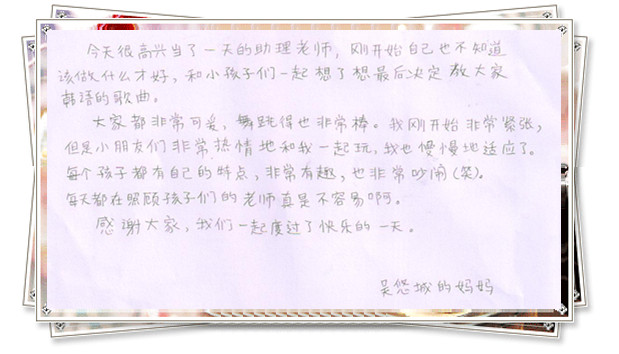 今天很高兴当了一天的助理老师，刚开始自己也不知道
该做什么才好，和小孩子们一起想了想最后决定教大家
韩语的歌曲。
大家都非常可爱，舞跳得也非常棒。我刚开始非常紧张，
但是小朋友们非常热情地和我一起玩，我也慢慢地适应了。
每个孩子都有自己的特点，非常有趣，也非常吵闹(笑)。
每天都在照顾孩子们的老师真是不容易啊。
感谢大家，我们一起度过了快乐的一天。
吴悠城的妈妈